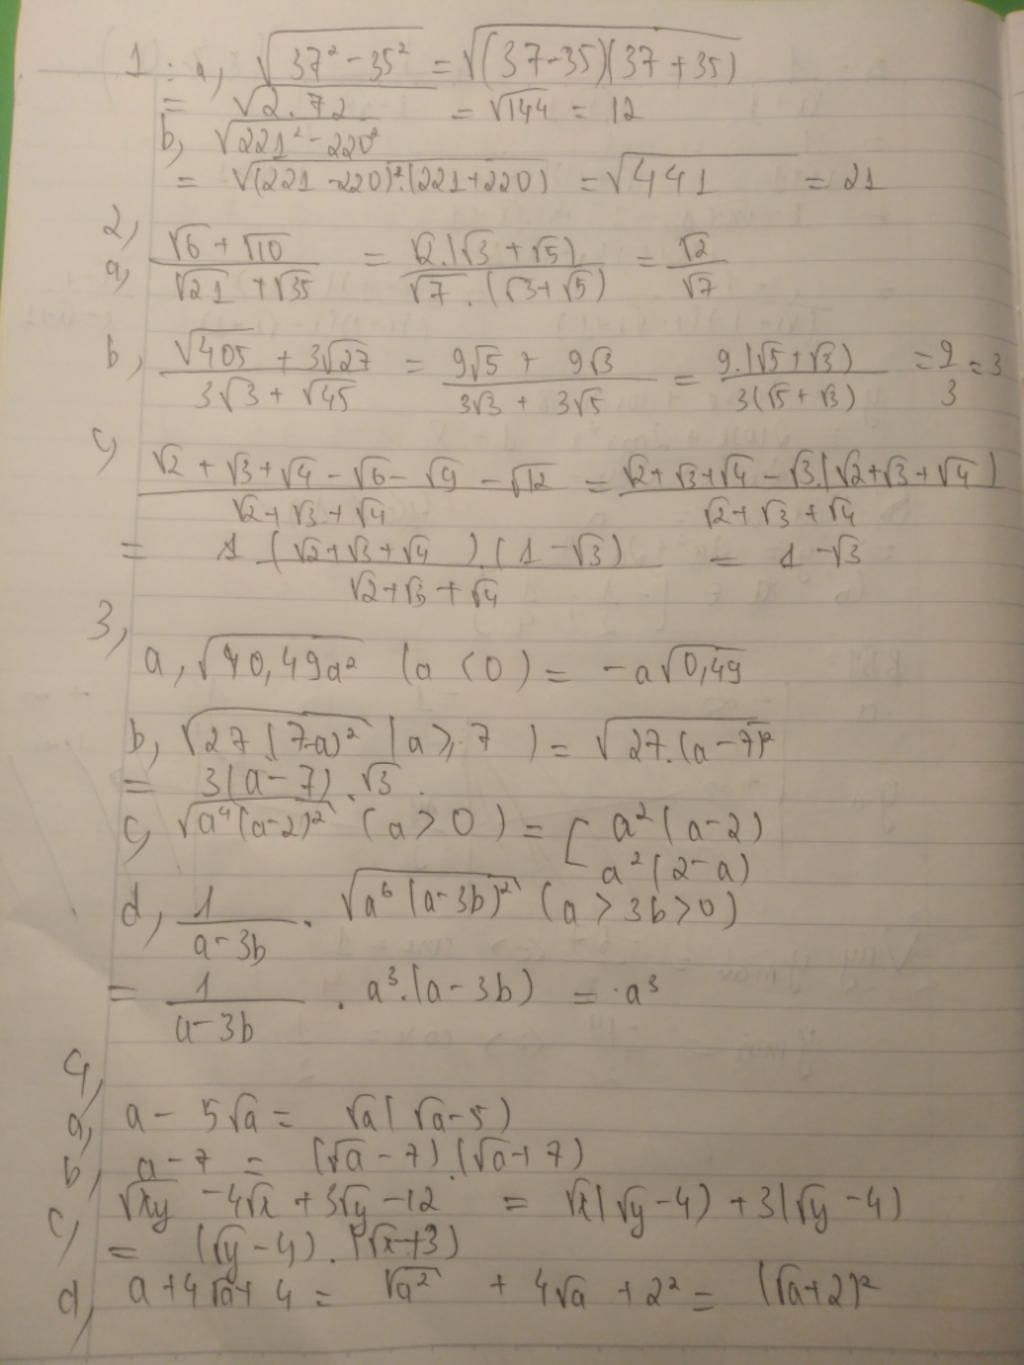 1: a, √(37² - 35²) = √((37-35)(37+35))
= √(2.72) = √144 = 12
b, √(221² - 220²)
= √((221-220)².(221+220)) = √441 = 21
2,
a, (√6 + √10)/(√21 + √35) = (√2.(√3 + √5))/(√7.(√3+√5)) = √2/√7
b, (√405 + 3√27)/(3√3 + √45) = (9√5 + 9√3)/(3√3 + 3√5) = (9.(√5+√3))/(3(√5+√3)) = 9/3 = 3
c, (√2 + √3 + √4 - √6 - √9 - √12)/(√2+√3+√4) = (√2+√3+√4 - √3.(√2+√3+√4))/(√2+√3+√4)
= 1 (√2+√3+√4).(1-√3)/(√2+√3+√4) = 1-√3
3,
a, √(40,49a²) (a < 0) = -a√0,49
b, √(27(7-a)²) (a ≥ 7) = √(27.(a-7)²)
= 3(a-7).√3.
c, √(a⁴(a-2)²) (a > 0) = [ a²(a-2)
a²(2-a)
d, 1/(a-3b) . √(a⁶(a-3b)²) (a > 3b > 0)
= 1/(a-3b) . a³.(a-3b) = a³
4,
a, a - 5√a = √a(√a-5)
b, a-7 = (√a-7).(√a+7)
c, √xy - 4√x + 3√y - 12 = √x(√y-4) + 3(√y-4)
= (√y-4).(√x+3)
d, a+4√a+4 = √a² + 4√a + 2² = (√a+2)²